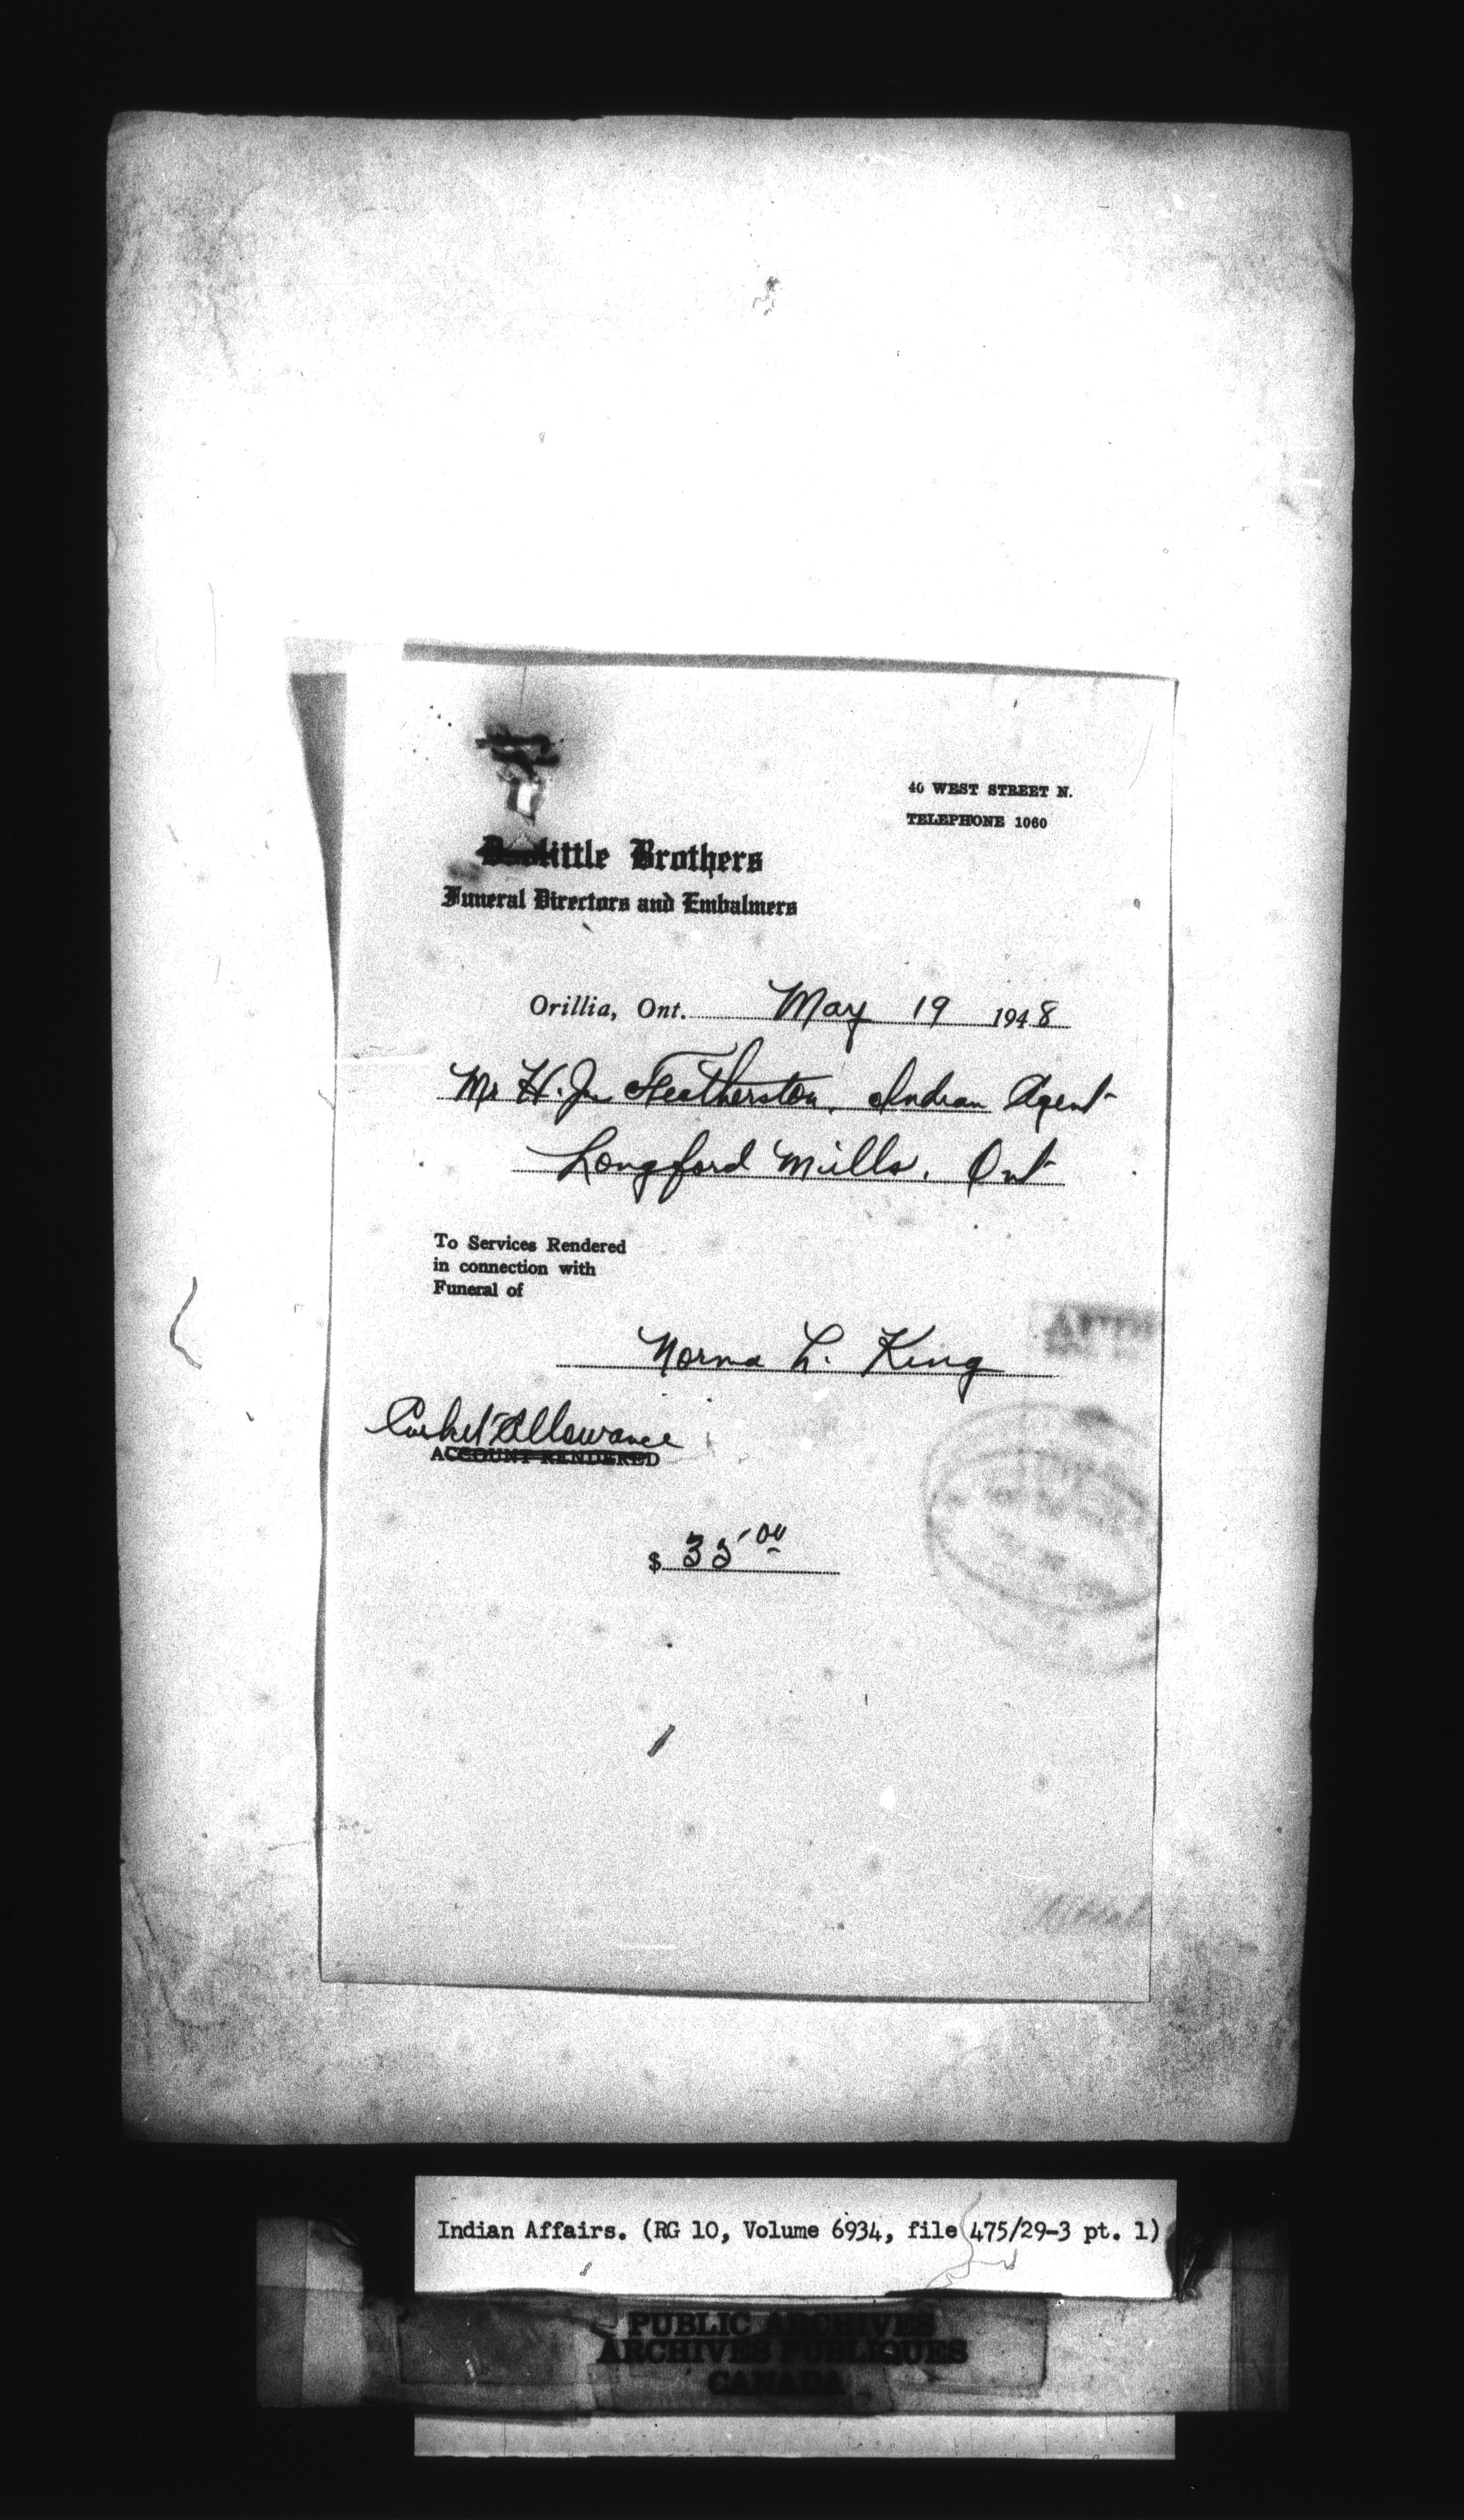 40 WEST STREET N.
TELEPHONE 1060
Doolittle Brothers
Funeral Directors and Embalmers
Orillia, Ont. May 19 1948
Mr H. J. Featherston, Indian Agent
Longford Mills, Ont
To Services Rendered
in connection with
Funeral of
Norma L. King
Casket Allowance
ACCOUNT RENDERED
$ 35.00
Indian Affairs. (RG 10, Volume 6934, file 475/29-3 pt. 1)
PUBLIC ARCHIVES
ARCHIVES PUBLIQUES
CANADA